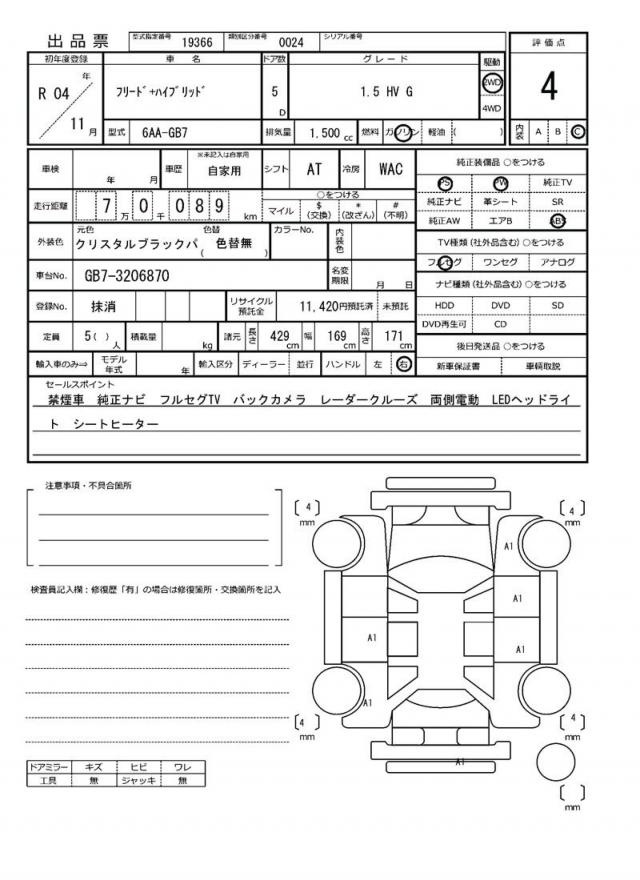 出品票 型式指定番号 19366 類別区分番号 0024 シリアル番号
初年度登録 車 名 ドア数 グレード 駆動 評価点
R 04 年 11 月 フリード+ハイブリッド 5 D 1.5 HV G 2WD 4WD 4
型式 6AA-GB7 排気量 1.500 cc 燃料 ガソリン 軽油 ( ) 内装 A B C
車検 年 月 車歴 ※未記入は自家用 自家用 シフト AT 冷房 WAC 純正装備品 ○をつける
PS PW 純正TV
走行距離 7 万 0 千 0 8 9 km ○をつける 純正ナビ 革シート SR
マイル $ (交換) * (改ざん) # (不明) 純正AW エアB ABS
外装色 元色 クリスタルブラックパ 色替 ( 色替無 ) カラーNo. 内装色 TV種類 (社外品含む) ○をつける
フルセグ ワンセグ アナログ
車台No. GB7-3206870 名変期限 月 日 ナビ種類 (社外品含む) ○をつける
登録No. 抹消 リサイクル預託金 11,420円預託済 未預託 HDD DVD SD
DVD再生可 CD
定員 5( ) 人 積載量 kg 諸元 長さ 429 cm 幅 169 cm 高さ 171 cm 後日発送品 ○をつける
輸入車のみ⇒ モデル年式 年 輸入区分 ディーラー 並行 ハンドル 左 右 新車保証書 車輌取説
セールスポイント
禁煙車 純正ナビ フルセグTV バックカメラ レーダークルーズ 両側電動 LEDヘッドライ
ト シートヒーター
注意事項・不具合箇所
[ 4 ] mm [ 4 ] mm
A1
検査員記入欄：修復歴「有」の場合は修復箇所・交換箇所を記入
A1
A1 A1
A1
[ 4 ] mm [ 4 ] mm
A1
ドアミラー キズ ヒビ ワレ
工具 無 ジャッキ 無
[ ] mm